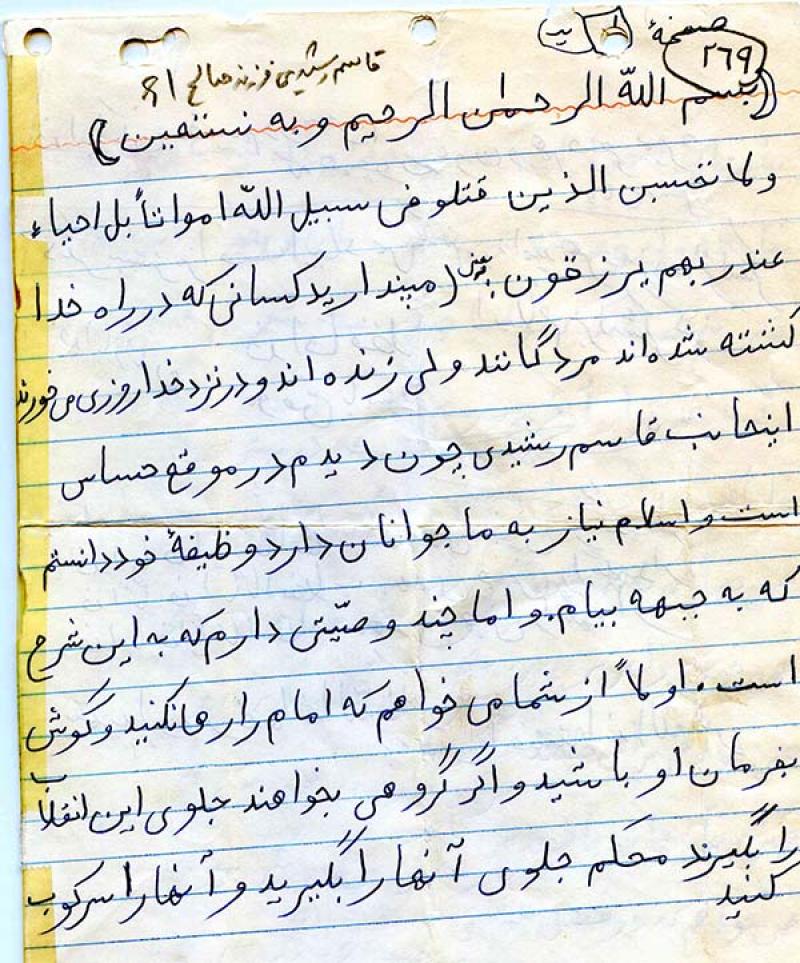 صفحهٔ
۲۶۹
قاسم رشیدی فرزند صالح ۶۱
(بسم اللّه الرحمان الرحیم و به نستعین)
ولا تحسبن الذین قتلو فی سبیل اللّه امواتاً بل احیاء
عند ربهم یرزقون (مپندارید کسانی که در راه خدا
کشته شده اند مردگانند ولی زنده اند و در نزد خدا روزی می خورند
اینجانب قاسم رشیدی چون دیدم در موقع حساس
است و اسلام نیاز به ما جوانان دارد وظیفهٔ خود دانستم
که به جبهه بیام. و اما چند وصیّتی دارم که به این شرح
است. اولاً از شما می خواهم که امام را رها نکنید و گوش
بفرمان او باشید و اگر گروهی بخواهند جلوی این انقلاب
را بگیرند محکم جلوی آنها را بگیرید و آنها را سرکوب
کنید